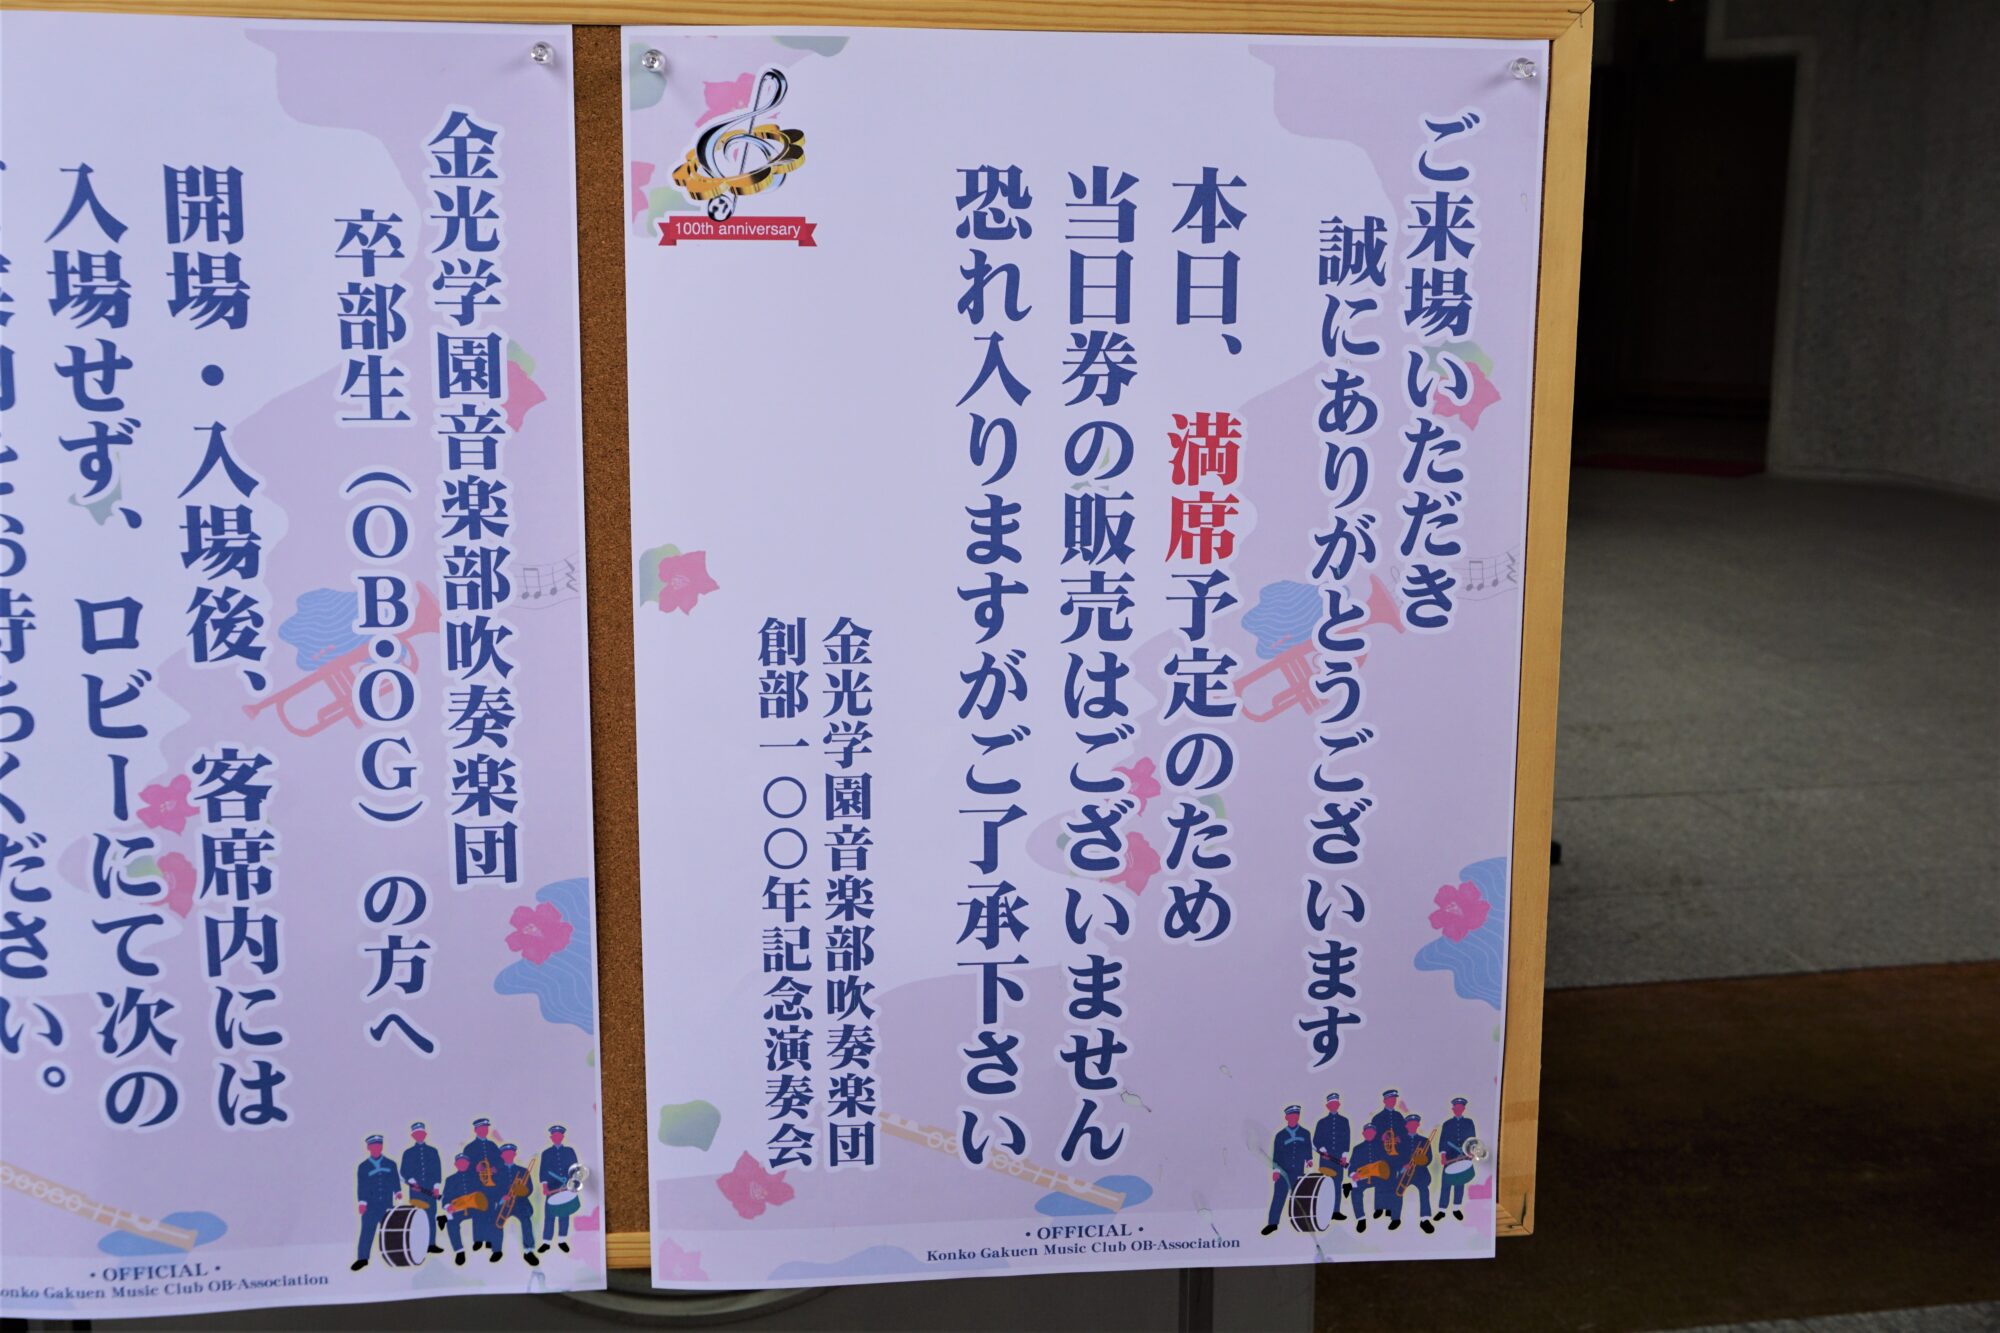 ご来場いただき
誠にありがとうございます
本日、満席予定のため
当日券の販売はございません
恐れ入りますがご了承下さい
金光学園音楽部吹奏楽団
創部一〇〇年記念演奏会
100th anniversary
・OFFICIAL・
Konko Gakuen Music Club OB-Association
金光学園音楽部吹奏楽団
卒部生（OB・OG）の方へ
開場・入場後、客席内には
入場せず、ロビーにて次の
お待ちください。
・OFFICIAL・
Gakuen Music Club OB-Association